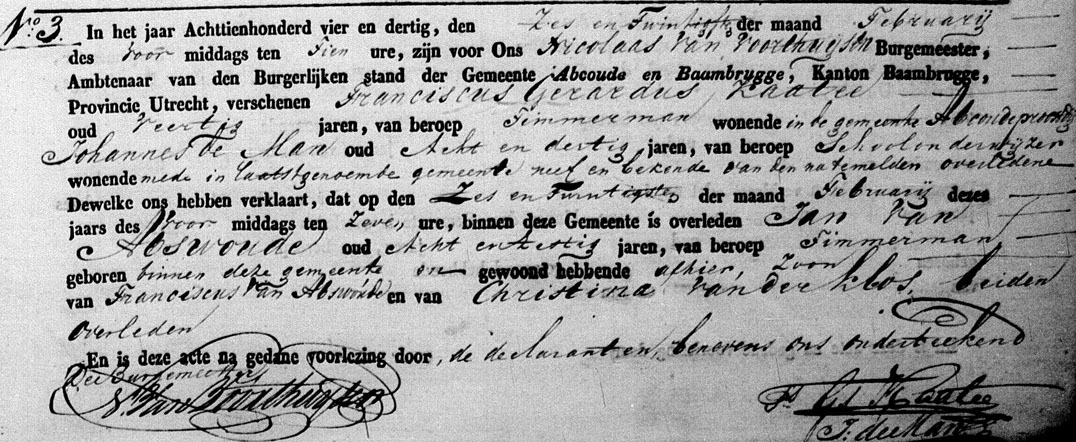 No 3. In het jaar Achttienhonderd vier en dertig, den Zes en Twintigste der maand Februarij
des Voor middags ten Tien ure, zijn voor Ons Nicolaas Van Voorthuijsen Burgemeester,
Ambtenaar van den Burgerlijken stand der Gemeente Abcoude en Baambrugge, Kanton Baambrugge,
Provincie Utrecht, verschenen Franciscus Gerardus Kaatee
oud Veertig jaren, van beroep Timmerman wonende in de gemeente Abcoude proostdij
Johannes de Man oud Acht en dertig jaren, van beroep Schoolonderwijzer
wonende mede in laatstgenoemde gemeente neef en bekende van den natemelden overledene
Dewelke ons hebben verklaart, dat op den Zes en Twintigsten der maand Februarij dezes
jaars des Voor middags ten Zeven ure, binnen deze Gemeente is overleden Jan Van
Abswoude oud Acht en jaren, van beroep Timmerman
geboren binnen deze gemeente en gewoond hebbende alhier, Zoon
van Franciscus Van Abswoude en van Christina Van der Klos, beiden
overleden
En is deze acte na gedane voorlezing door, de declaranten, benevens ons onderteekend
De Burgemeester
N. Van Voorthuijsen
Fs Gs Kaatee
J. de Man